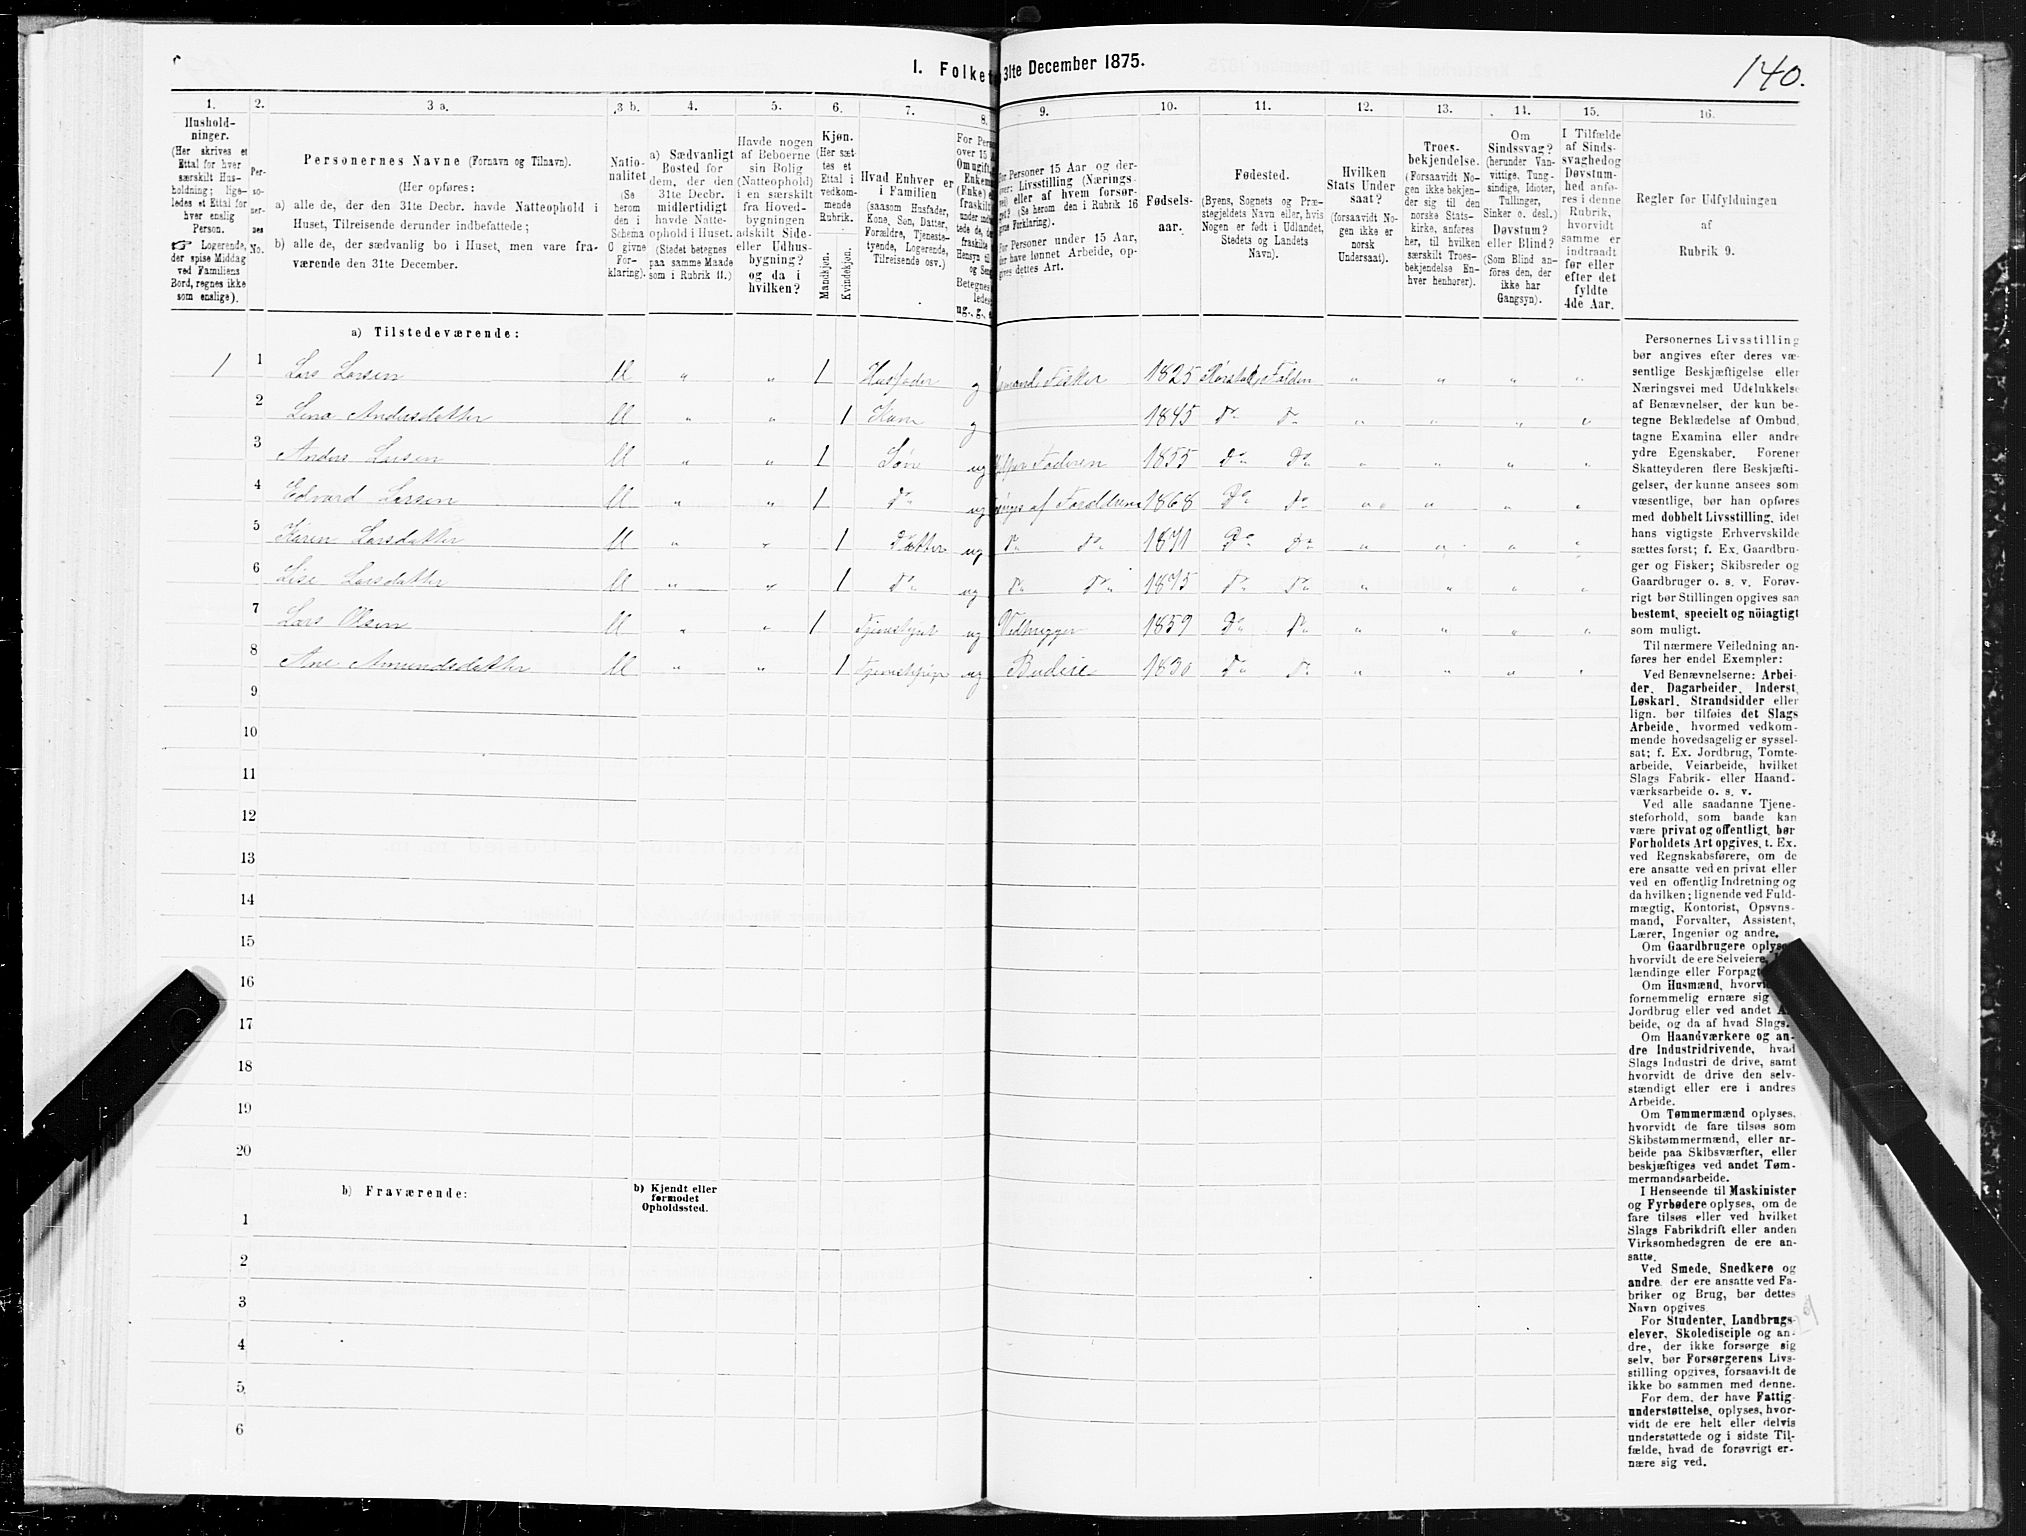 1. Folket 31lte December 1875.
140.
1.
Hushold-
ninger.
(Her skrives et
Ettal for hver
særskilt Hus-
holdning; lige-
ledes et Ettal for
hver enslig
Person.
☞ Logerende,
der spise Middag
ved Familiens
Bord, regnes ikke
som enslige).
2.
Per-
so-
ner-
nes
No.
3 a.
Personernes Navne (Fornavn og Tilnavn).
(Her opføres:
a) alle de, der den 31te Decbr. havde Natteophold i
Huset, Tilreisende derunder indbefattede;
b) alle de, der sædvanlig bo i Huset, men vare fra-
værende den 31te December.
3 b.
Natio-
nalitet
(Se
herom
den i
Schema
O givne
For-
klaring).
4.
a) Sædvanligt
Bosted for
dem, der den
31te Decbr.
midlertidigt
havde Natte-
ophold i Huset.
(Stedet betegnes
paa samme Maade
som i Rubrik 11.)
5.
Havde nogen
af Beboerne
sin Bolig
(Natteophold)
i en særskilt
fra Hoved-
bygningen
adskilt Side-
eller Udhus-
bygning?
og da i
hvilken?
6.
Kjøn.
(Her sæt-
tes et
Ettal i
vedkom-
mende
Rubrik.
Mandkjøn.
Kvindekjøn.
7.
Hvad Enhver er
i Familien
(saasom Husfader,
Kone, Søn, Datter,
Forældre, Tjeneste-
tyende, Logerende,
Tilreisende osv.)
8.
For Pers
over 15
Om ugift,
Enkem
(Enke) e
fraskilt
under ind
tede de, d
fraskilte
Hensyn til
og Sen
Betegnes
ledes
ug., g., e
9.
For Personer 15 Aar og der-
over: Livsstilling (Nærings-
vei) eller af hvem forsør-
get? (Se herom den i Rubrik 16
givne Forklaring).
For Personer under 15 Aar,
der have lønnet Arbeide, op-
gives dettes Art.
10.
Fødsels-
aar.
11.
Fødested.
(Byens, Sognets og Præ-
stegjeldets Navn eller, hvis
Nogen er født i Udlandet,
Stedets og Landets
Navn).
12.
Hvilken
Stats Under
saat?
(forsaavidt No-
gen ikke er
norsk
Undersaat).
13.
Troes-
bekjendelse.
(Forsaavidt No-
gen ikke bekjen-
der sig til den
norske Stats-
kirke, anføres
her, til hvilken
særskilt Troes-
bekjendelse En-
hver henhører).
14.
Om
Sindssvag?
(herunder Van-
vittige, Tung-
sindige, Idioter,
Tullinger,
Sinker o. desl.)
Døvstum?
eller Blind?
(Som Blind an-
føres den, der
ikke har
Gangsyn).
15.
I Tilfælde
af Sinds-
svaghedog
Døvstum-
hed anfø-
res i denne
Rubrik,
hvorvidt
samme er
indtraadt
før eller
efter det
fyldte
4de Aar.
16.
Regler for Udfyldningen
af
Rubrik 9.
a) Tilstedeværende:
1 1 Lars Larsen M „ „ 1 Husfader g Fisker 1825 Folden „ „ „ „
2 Lina Andersdatter M „ „ 1 Kone g 1845 Do Do „ „ „ „
3 Anders Larsen M „ „ 1 Søn ug Faderen 1855 Do Do „ „ „ „
4 Edvard Larsen M „ „ 1 Do ug af Forældrene 1868 Do Do „ „ „ „
5 Karen Larsdatter M „ „ 1 Datter ug Do Do 1871 Do Do „ „ „ „
6 Lise Larsdatter M „ „ 1 Do ug Do Do 1875 Do Do „ „ „ „
7 Lars Olsen M „ „ 1 ug Vedhugger 1859 Do Do „ „ „ „
8 Ane Amundsdatter M „ „ 1 ug Budeie 1830 Do Do „ „ „ „
9
10
11
12
13
14
15
16
17
18
19
20
b) Fraværende:
b) Kjendt eller
formodet
Opholdssted.
1
2
3
4
5
6
Personernes Livsstilling
bør angives efter deres væ-
sentlige Beskjæftigelse eller
Næringsvei med Udelukkelse
af Benævnelser, der kun be-
tegne Beklædelse af Ombud,
tagne Examina eller andre
ydre Egenskaber. Forener
Skatteyderen flere Beskjæfti-
gelser, der kunne ansees som
væsentlige, bør han opføres
med dobbelt Livsstilling, idet
hans vigtigste Erhvervskilde
sættes først; f. Ex. Gaardbru-
ger og Fisker; Skibsreder og
Gaardbruger o. s. v. Forøv-
rigt bør Stillingen opgives saa
bestemt, specielt og nöiagtigt
som muligt.
Til nærmere Veiledning an-
føres her endel Exempler:
Ved Benævnelserne: Arbei-
der, Dagarbeider, Inderst,
Løskarl, Strandsidder eller
lign. bør tilføies det Slags
Arbeide, hvormed vedkom-
mende hovedsagelig er syssel-
sat; f. Ex. Jordbrug, Tomte-
arbeide, Veiarbeide, hvilket
Slags Fabrik- eller Haand-
værksarbeide o. s. v.
Ved alle saadanne Tjene-
steforhold, som baade kan
være privat og offentligt, bør
Forholdets Art opgives, t. Ex.
ved Regnskabsførere, om de
ere ansatte ved en privat eller
ved en offentlig Indretning og
da hvilken; lignende ved Fuld-
mægtig, Kontorist, Opsyns-
mand, Forvalter, Assistent,
Lærer, Ingeniør og andre.
Om Gaardbrugere oplyse
hvorvidt de ere Selveiere,
lændinge eller Forpagt
Om Husmænd, hvorvi
fornemmelig ernære sig
Jordbrug eller ved andet A
beide, og da af hvad Slags.
Om Haandværkere og an-
dre Industridrivende, hvad
Slags Industri de drive, samt
hvorvidt de drive den selv-
stændigt eller ere i andres
Arbeide.
Om Tømmermænd oplyses,
hvorvidt de fare tilsøs som
Skibstømmermænd, eller ar-
beide paa Skibsværfter, eller
beskjæftiges ved andet Tøm-
mermandsarbeide.
I Henseende til Maskinister
og Fyrbødere oplyses, om de
fare tilsøs eller ved hvilket
Slags Fabrikdrift eller anden
Virksomhedsgren de ere an-
satte.
Ved Smede, Snedkere og
andre, der ere ansatte ved Fa-
briker og Brug, bør dettes
Navn opgives
For Studenter, Landbrugs-
elever, Skoledisciple og an-
dre, der ikke forsørge sig
selv, bør Forsørgerens Livs-
stilling opgives, forsaavidt de
ikke bo sammen med denne.
For dem, der have Fattig-
understøttelse, oplyses, hvor-
vidt de ere helt eller delvis
understøttede og i sidste Til-
fælde, hvad de forøvrigt er-
nære sig ved.